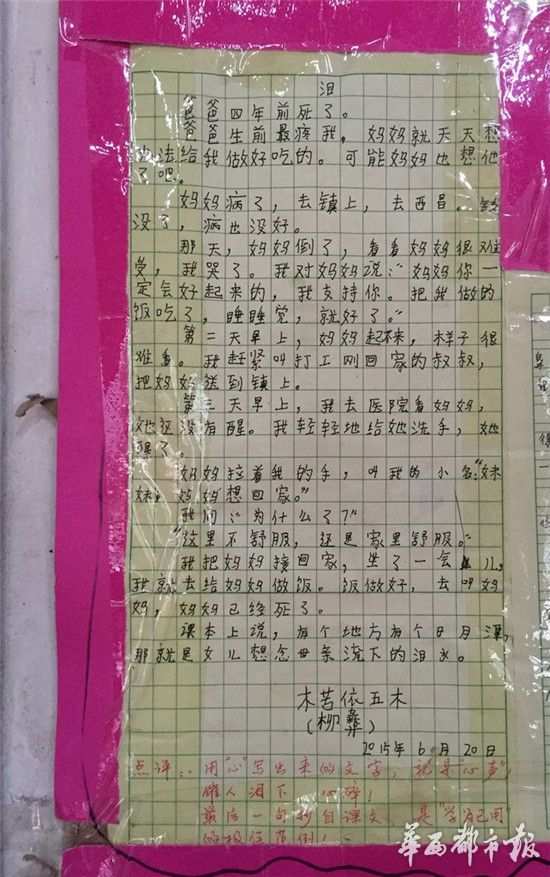 泪
爸爸四年前死了。
爸爸生前最疼我，妈妈就天天想
办法给我做好吃的。可能妈妈也想他
了吧。
妈妈病了，去镇上，去西昌。钱
没了，病也没好。
那天，妈妈倒了，看看妈妈很难
受，我哭了。我对妈妈说：“妈妈你一
定会好起来的，我支持你。把我做的
饭吃了，睡睡觉，就好了。”
第二天早上，妈妈起不来，样子很
难看。我赶紧叫打工刚回家的叔叔，
把妈妈送到镇上。
第三天早上，我去医院看妈妈，
她还没有醒。我轻轻地给她洗手，她
醒了。
妈妈拉着我的手，叫我的小名：“妹
妹，妈妈想回家。”
我问：“为什么了？”
“这里不舒服，还是家里舒服。”
我把妈妈接回家，坐了一会儿，
我就去给妈妈做饭。饭做好，去叫妈
妈，妈妈已经死了。
课本上说，有个地方有个日月潭，
那就是女儿想念母亲流下的泪水。
木苦依五木
（柳彝）
2015年6月20日
点评：用“心”写出来的文字，就是“心声”，
催人泪下 心碎！
最后一句抄自课文， 是“学为己用”
华西都市报